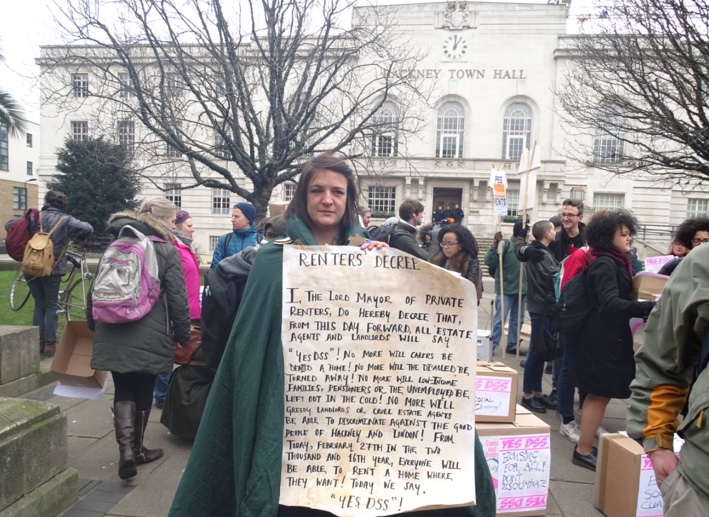 HACKNEY TOWN HALL
RENTERS DECREE
I, THE LORD MAYOR OF PRIVATE
RENTERS, DO HEREBY DECREE THAT,
FROM THIS DAY FORWARD, ALL ESTATE
AGENTS AND LANDLORDS WILL SAY
"YES DSS"! NO MORE WILL CARERS BE
DENIED A HOME! NO MORE WILL THE DISABLED BE
TURNED AWAY! NO MORE WILL LOW-INCOME
FAMILIES, PENSIONERS OR THE UNEMPLOYED BE
LEFT OUT IN THE COLD! NO MORE WILL
GREEDY LANDLORDS OR CRUEL ESTATE AGENTS
BE ABLE TO DISCRIMINATE AGAINST THE GOOD
PEOPLE OF HACKNEY AND LONDON! FROM
TODAY, FEBRUARY 27TH IN THE TWO
THOUSAND AND 16TH YEAR, EVERYONE WILL
BE ABLE TO RENT A HOME WHERE
THEY WANT! TODAY WE SAY,
"YES DSS"!
YES DSS
YES DSS
HOUSING
FOR ALL!
DON'T
DISCRIMINATE
YES DSS